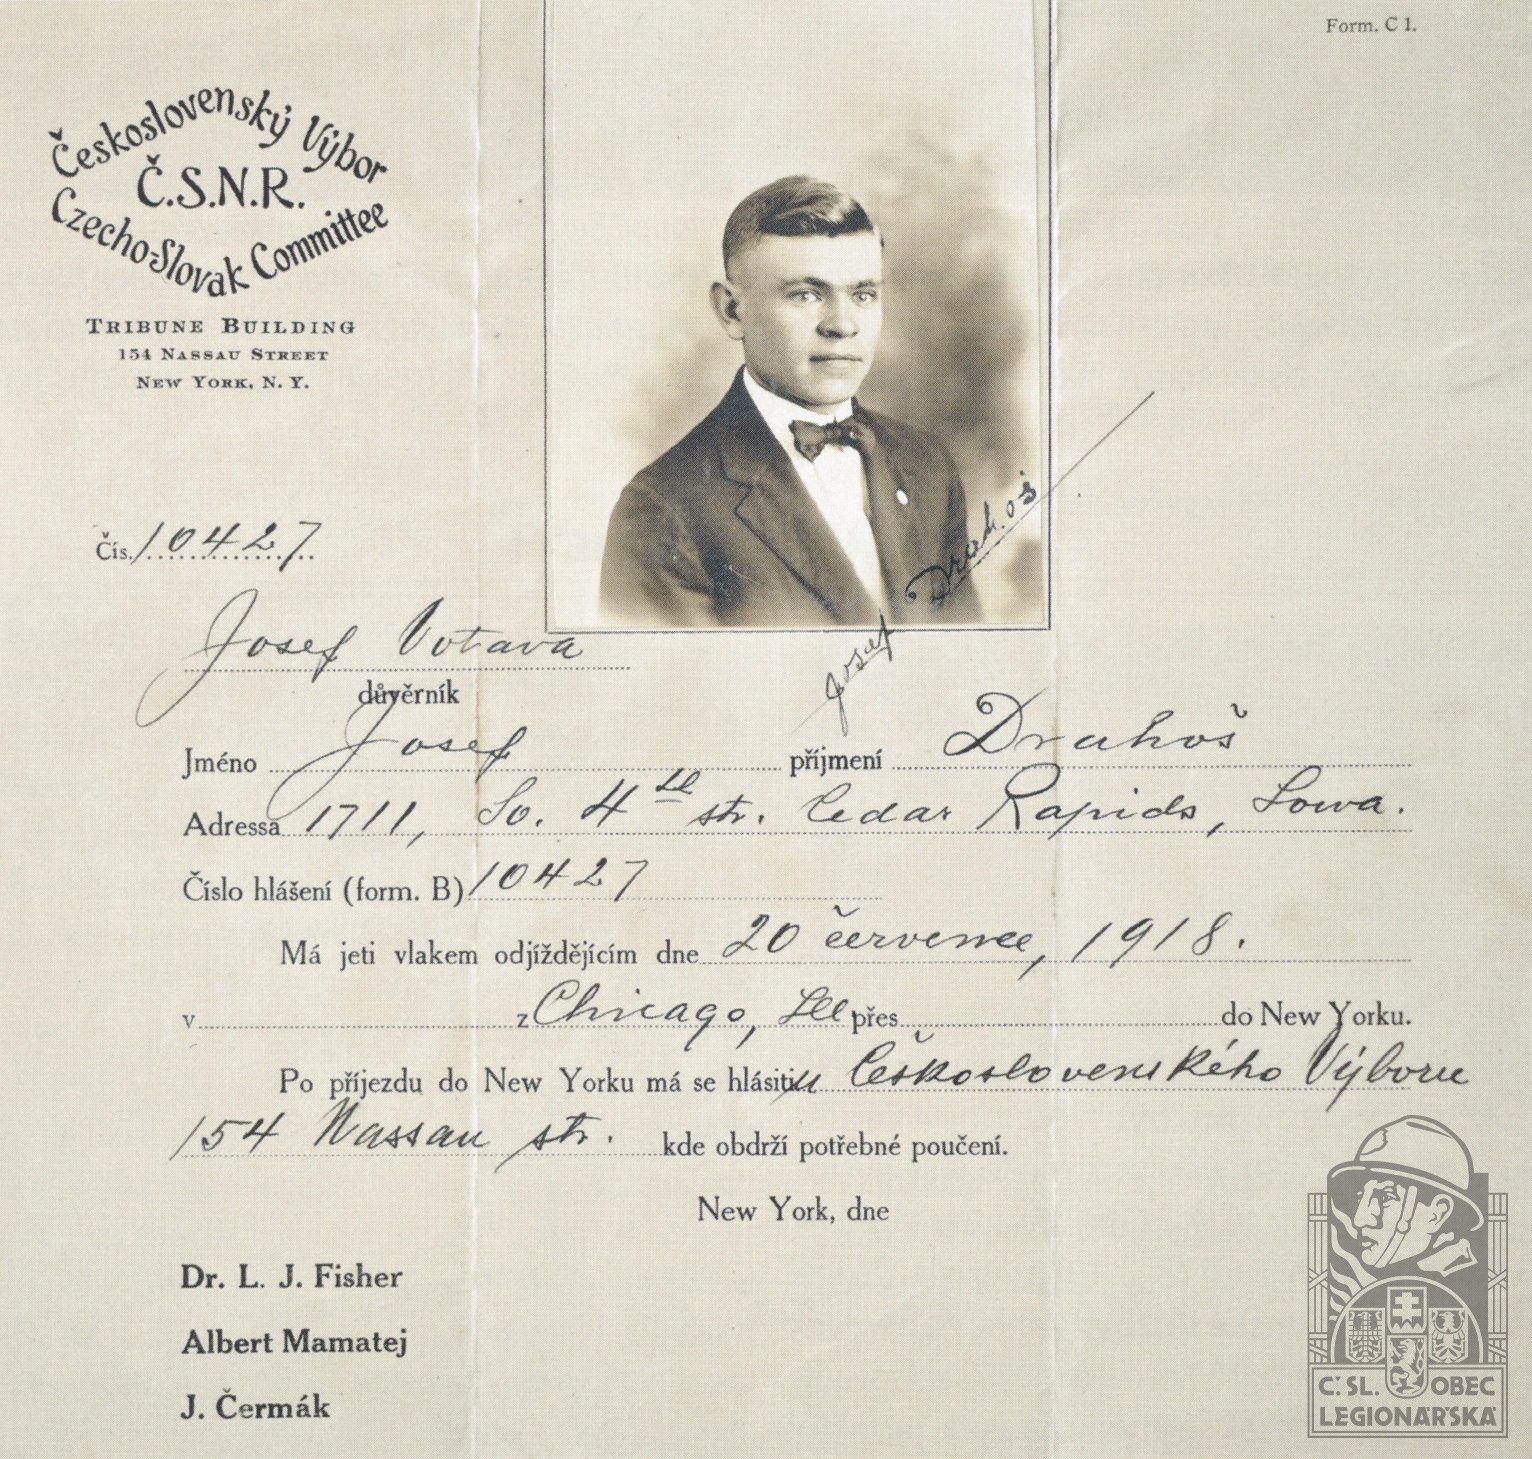 Form. C 1.
Československý Výbor
Č.S.N.R.
Czecho-Slovak Committee
TRIBUNE BUILDING
154 NASSAU STREET
NEW YORK, N. Y.
Čís. 10427
Josef Drahoš
Josef Votava
důvěrník
Jméno Josef příjmení Drahoš
Adressa 1711, So. 4 th str. Cedar Rapids, Iowa.
Číslo hlášení (form. B) 10427
Má jeti vlakem odjíždějícím dne 20 července, 1918.
v z Chicago, Ill přes do New Yorku.
Po příjezdu do New Yorku má se hlásiti u Československého Výboru
154 Nassau str. kde obdrží potřebné poučení.
New York, dne
Dr. L. J. Fisher
Albert Mamatej
J. Čermák
Č.SL. OBEC
LEGIONÁŘSKÁ